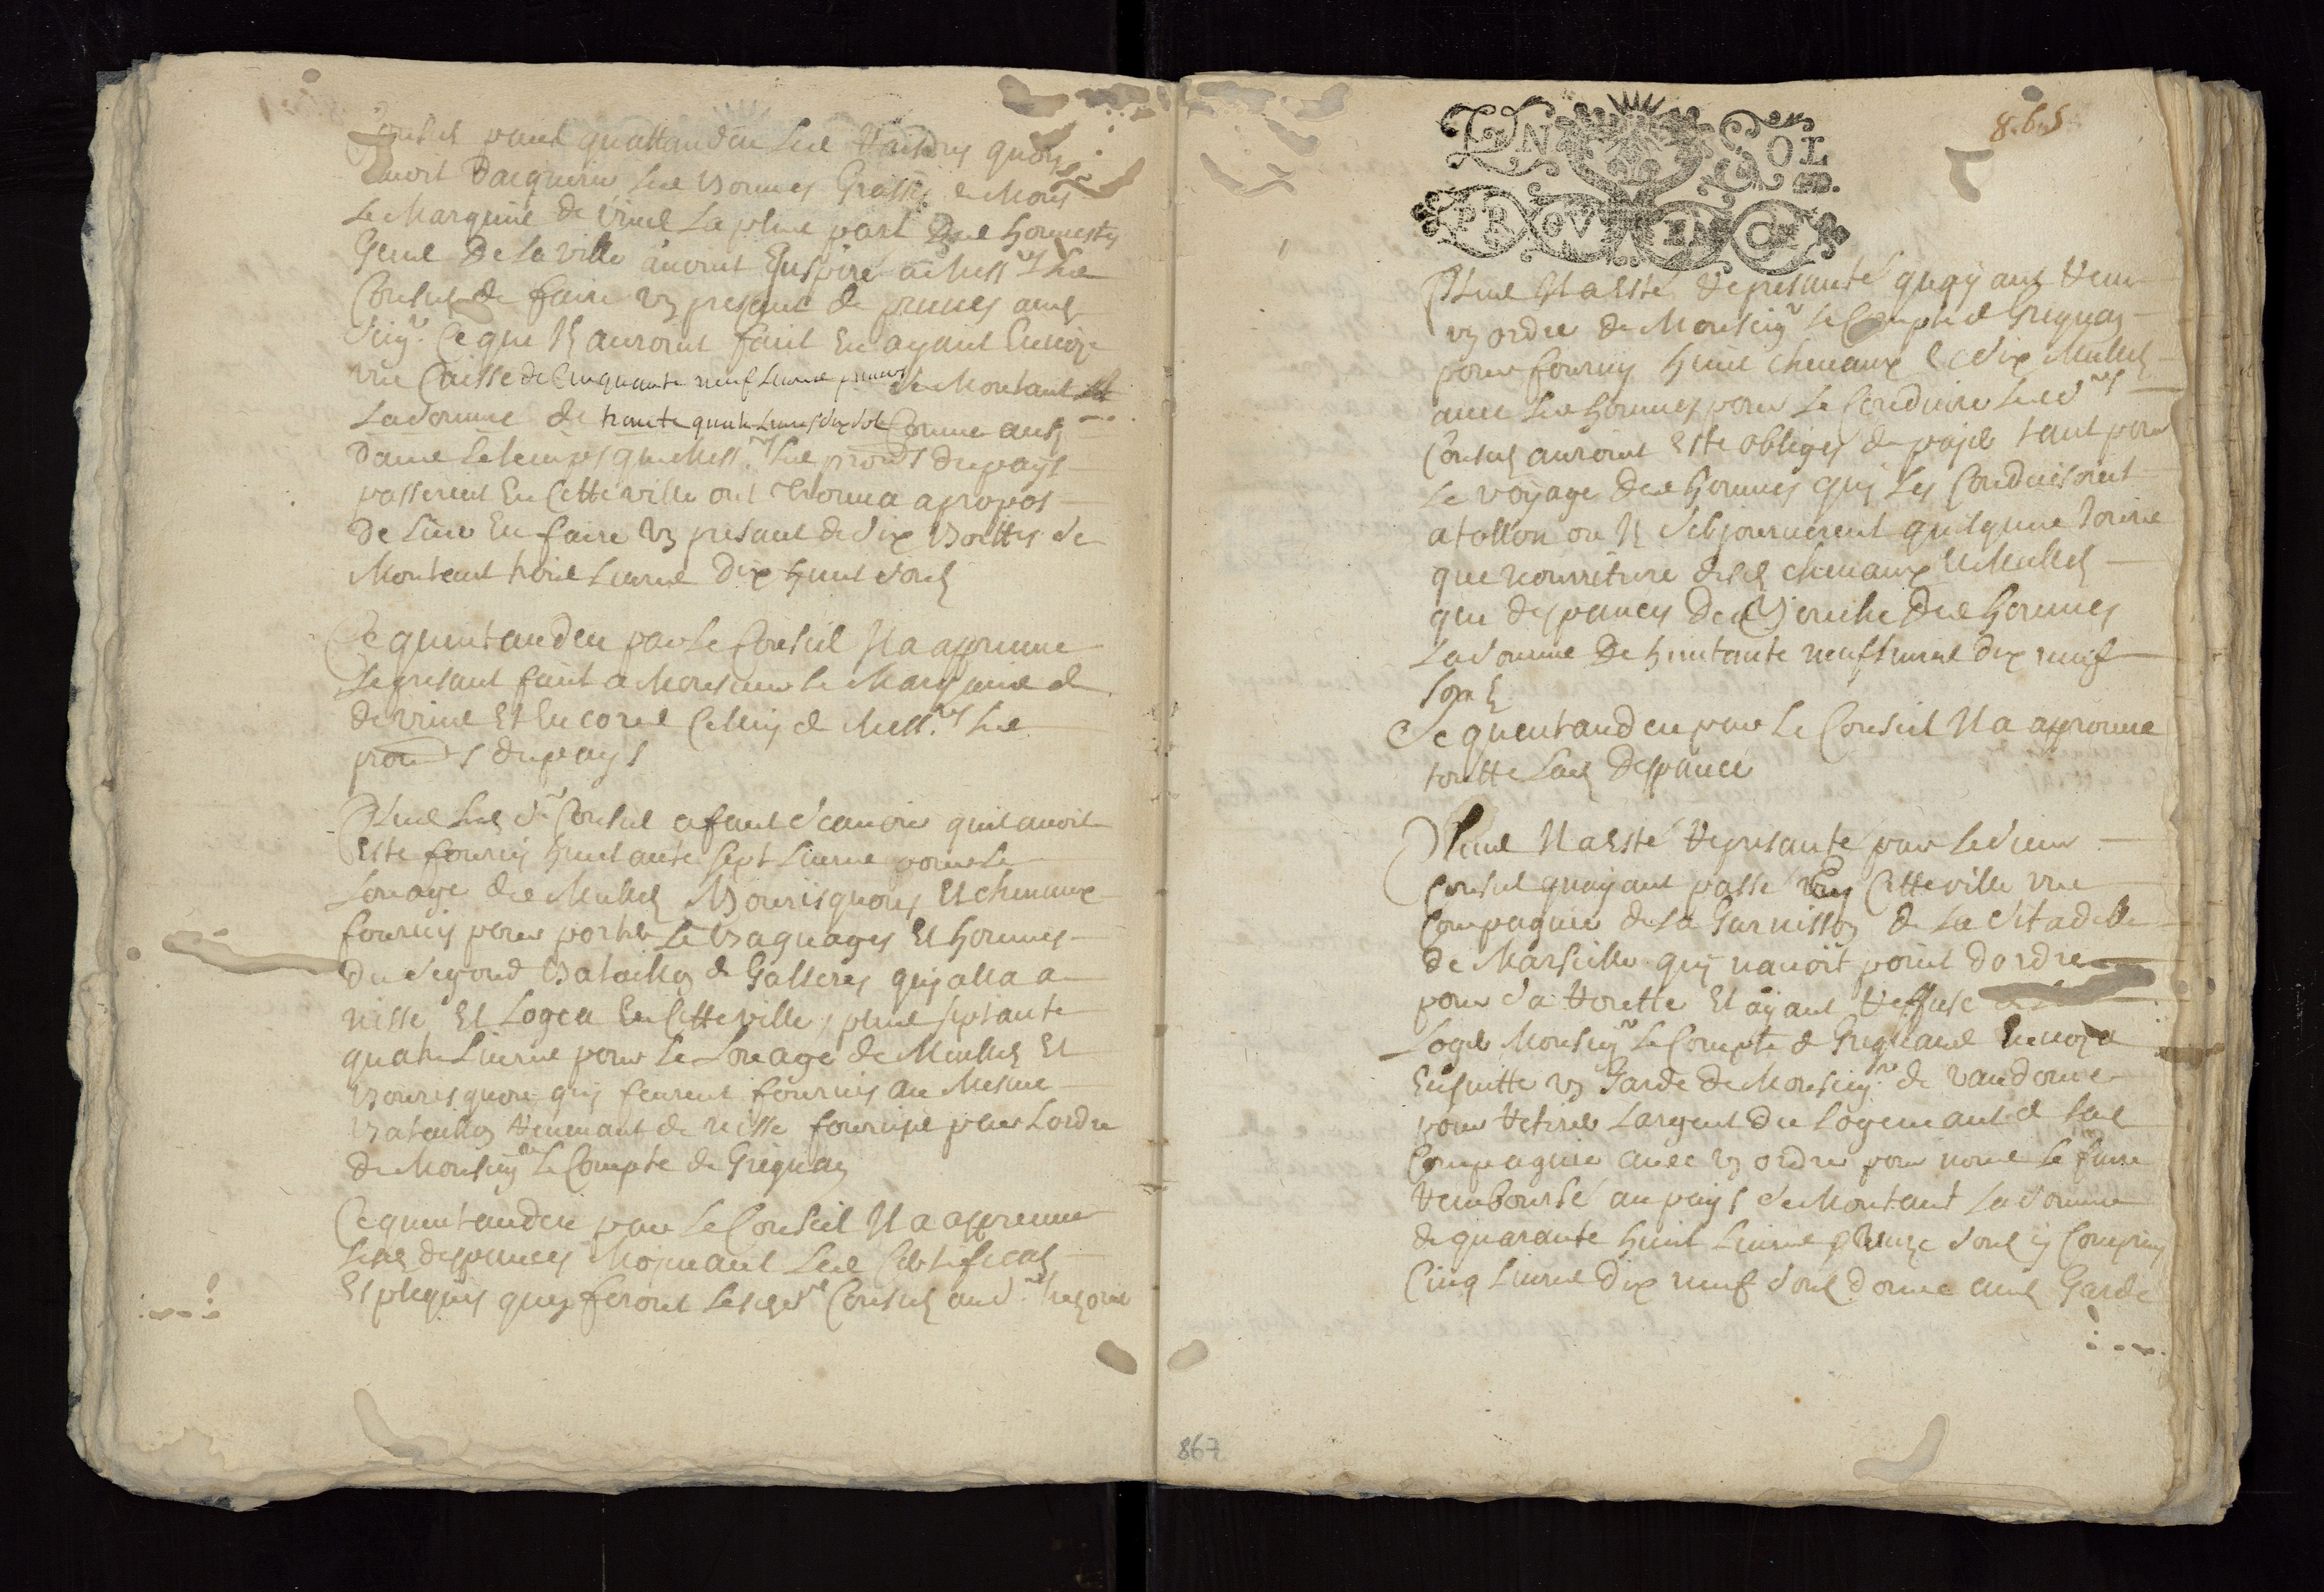 quattandeu les raisons quon
avoit dacquerir les bonnes grasses de Mons
Le Marquis de Vins la plus part des honnestes
gens de la ville auroint Inspiré a Mess.rs les
Consuls de faire un presant de prunes aud
seig.r Ce que Ils auroint fait En ayant Envoyé
une Caisse de Cinquante neuf Livres prunes se Montant
La somme de trante quatre Livres dix sols Comme aussy
dans le temps que Mess.rs les pro.rs du pays
passerent En Cette ville ont trouva apropos
de Leur En faire un presant de dix boittes se
Montant trois Livres dix huit sols
Ce quentandeu par Le Conseil Il a approuvé
Le presant fait a Monsieur le Marquis de
de Vins Et Encores Celluy de Mess.rs les
pro.rs du pays
Plus led s.r Consul a fait scavoir quil avoit
Esté fourny huitante sept Livres pour Le
Louage des Mullets Bourisquous Et chevaux
fournis pour porter Le bagages Et hommes
du segond bataillon de Galleres quy alla a
nisse Et Logea En Cette ville, plus septante
quatre Livres pour Le Louage de Mullets Et
bourisquous quy feurent fournis au Mesme
bataillon Revenant de nisse fournipe par Lordre
de Monseig.r Le Compte de Grignan
Ce quentandeu par Le Conseil Il a approuvé
Lesd despances Moyenant Les Certificats
Et plequis quen feront Lesd s.rs Consuls aud s.r tresorier
865
IN SOL
PROVENCE
Plus Il a Esté Represanté quayant Reçeu
un ordre de Monseig.r Le Compte de Grignan
pour fournir huit chevaux & dix Mullets
avec les hommes pour Le Conduire Lesd s.rs
Consuls auroint Esté obliges de payer tant pour
Le voyage des hommes quy Les Conduisoint
a tollon ou Ils sesjournerent quelques jours
que nourriture desd chevaux Et Mullets
que despances de bouche des hommes
La somme De huitante neuf Livres dix neuf
sols
Ce quentandeu par Le Conseil Il a approuvé
toutte Lad despance
Plus Il a Esté Represanté par Le sieur
Consul quayant passé En Cette ville une
Compagnie de La Garnisson de La Sitadelle
de Marseille quy navoit point dordre
pour sa Routte Et ayant Reffusé de
Loger Monseig.r Le Compte de Grignan Envoya
Ensuitte un Garde de Monseig.r de Vandome
pour Retirer Largent du Logemant de lad
Compagnie avec un ordre pour nous Le faire
Rembourse au pays se Montant La somme
de quarante huit Livres onze sols y Compris
Cinq Livres dix neuf sols donne aud Garde
867